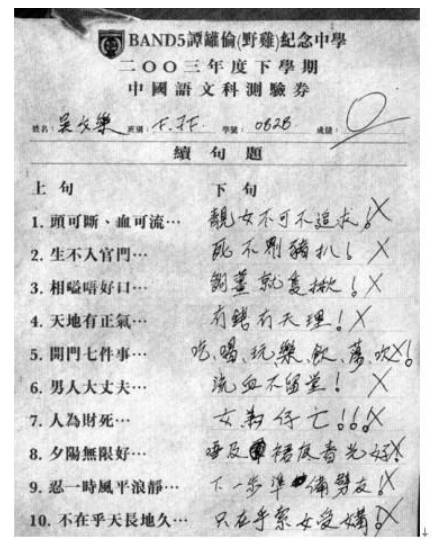 BAND5譚罐倫(野雞)紀念中學
二〇〇三年度下學期
中國語文科測驗券
姓名: 吳 樂 班別: F. 學號: 0828 成績: 0
續句題
上句 下句
1. 頭可斷、血可流… 靚女不可不追求!
2. 生不入官門… 死不劏豬扒!
3. 相嗌唔好口… 劏薑就隻揪!
4. 天地有正氣… 有錢冇天理!
5. 開門七件事… 吃、喝、玩、樂、飲、蕩、吹!
6. 男人大丈夫… 流血不留堂!
7. 人為財死… 女為仔亡!!!
8. 夕陽無限好… 唔及裙底春光好!
9. 忍一時風平浪靜… 下一步準備劈友!
10. 不在乎天長地久… 只在乎索女受媾!